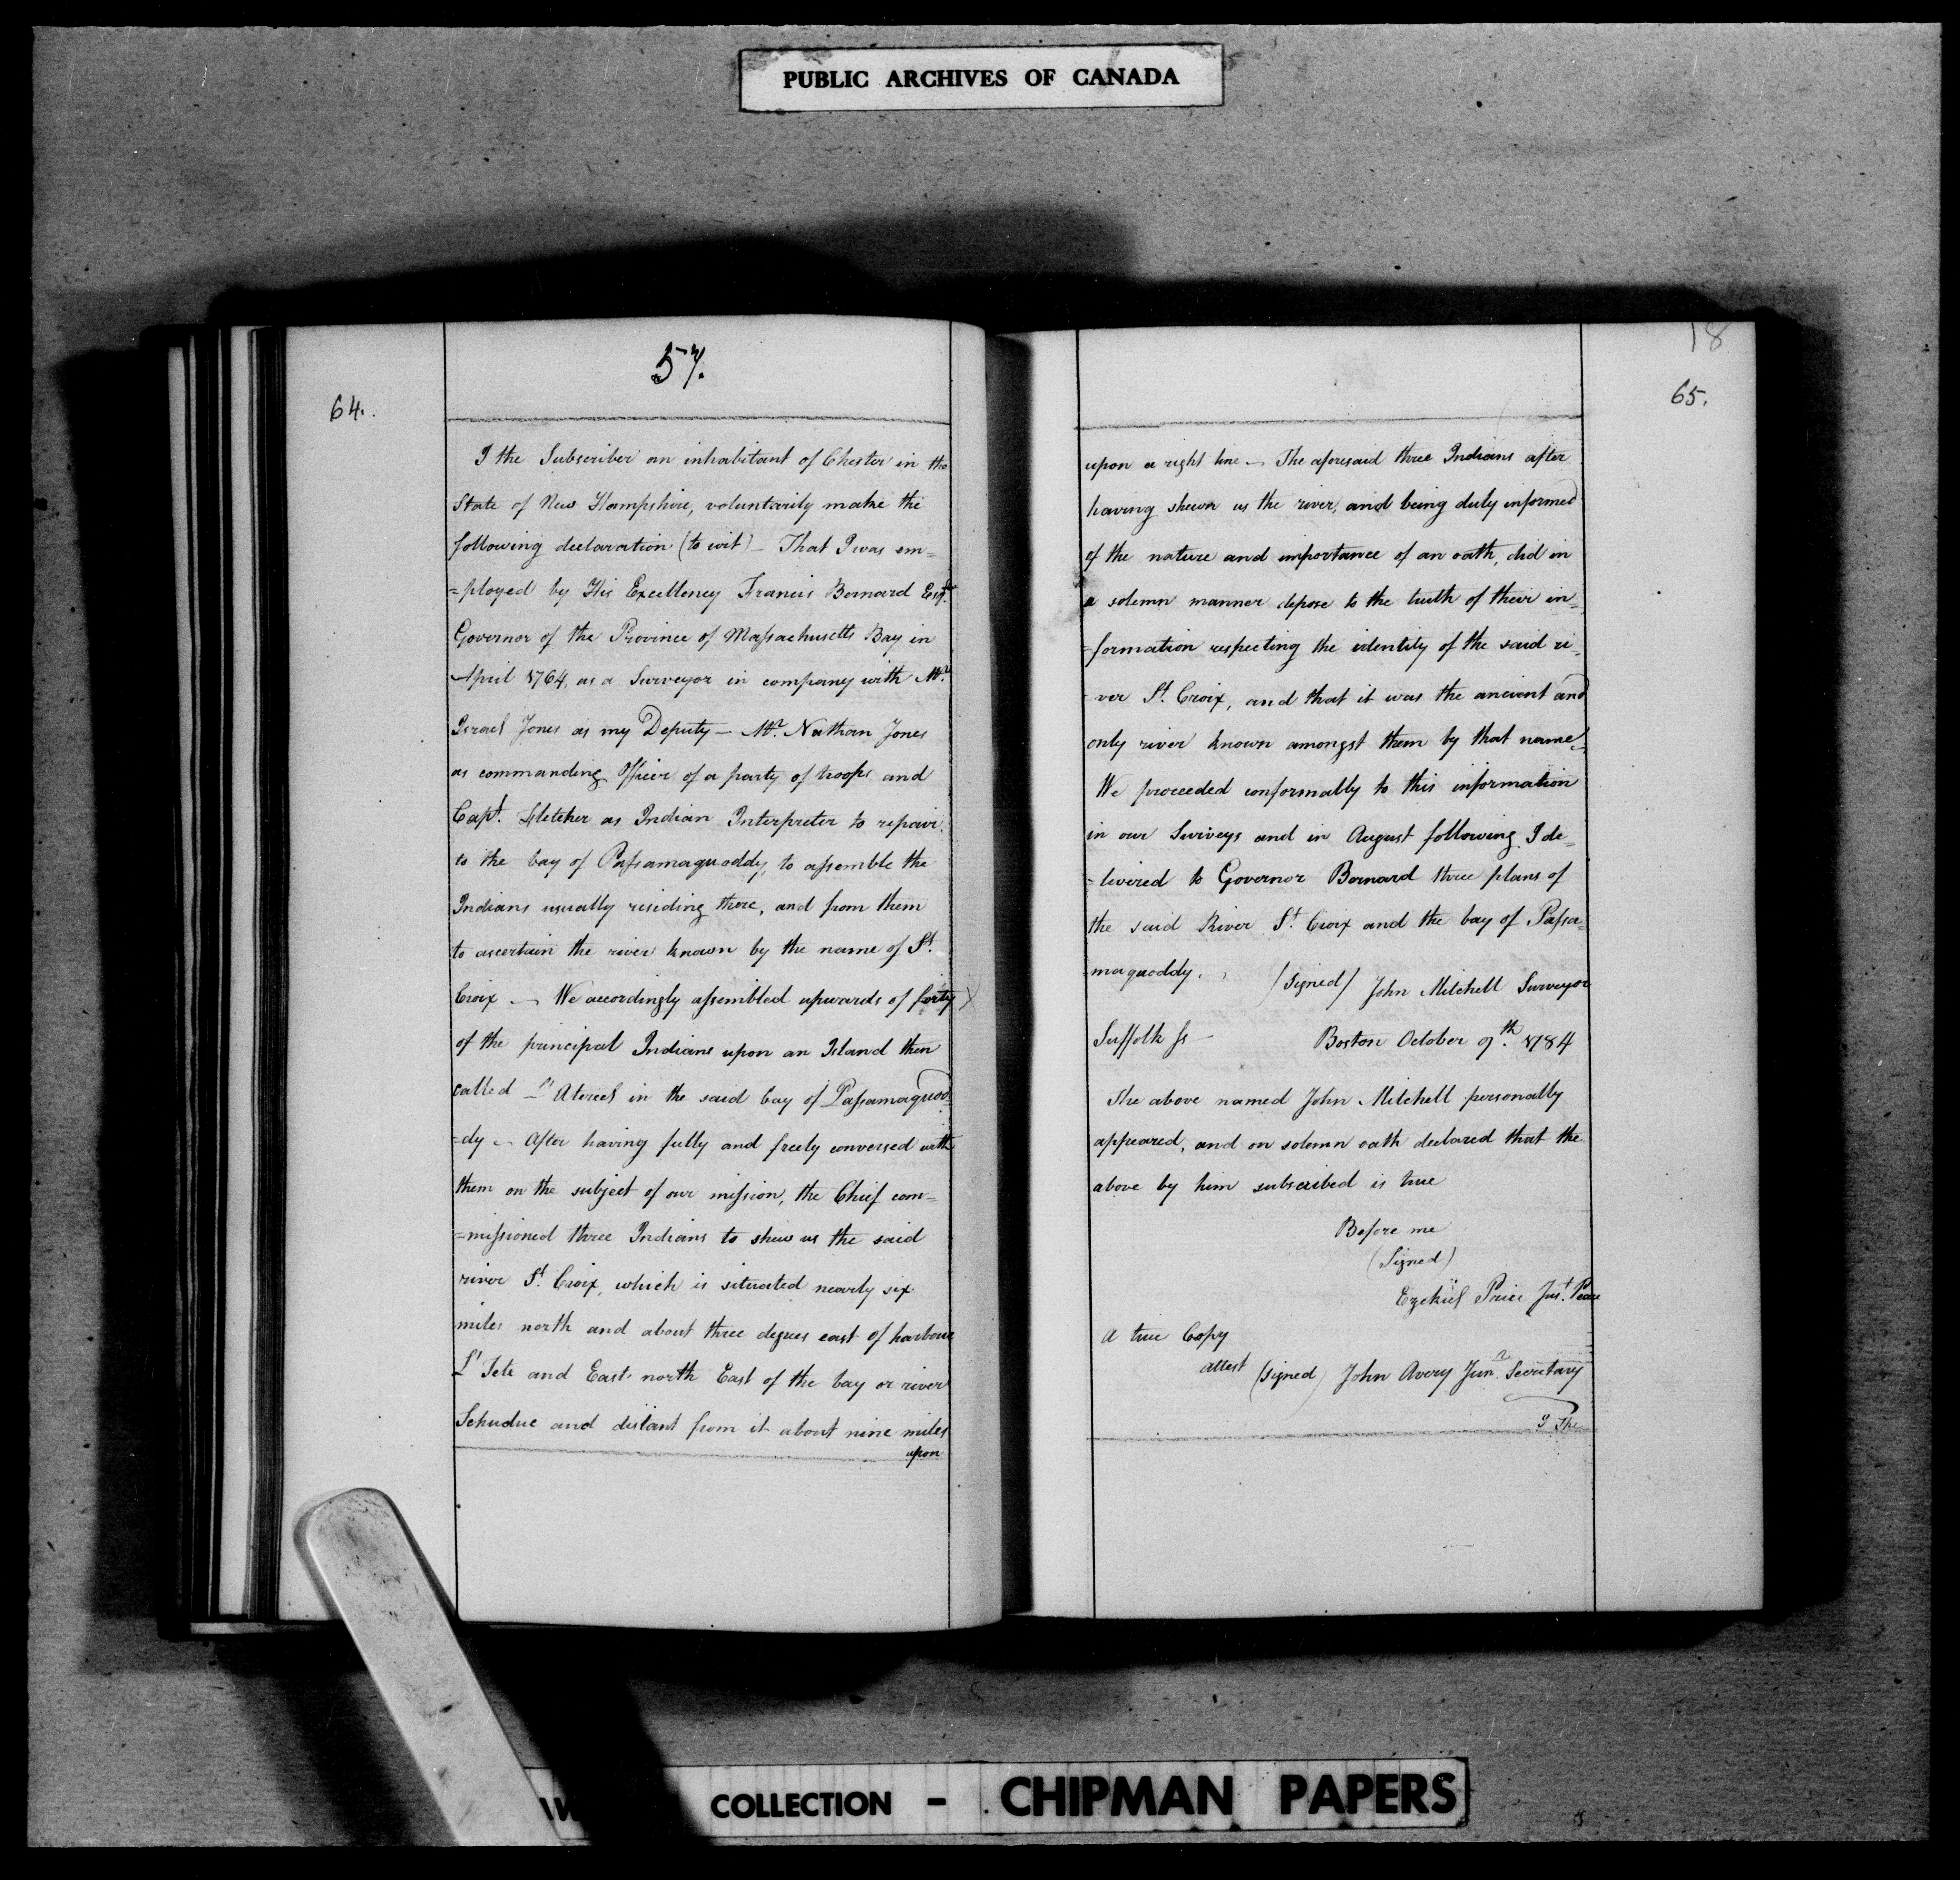 PUBLIC ARCHIVES OF CANADA
57.
64.
I the Subscriber an inhabitant of Chester in the
State of New Hampshire, voluntarily make the
following declaration (to wit) – That I was em=
=ployed by His Excellency Francis Bernard Esqr.
Governor of the Province of Massachusetts Bay in
April 1764, as a Surveyor in company with Mr.
Israel Jones as my Deputy – Mr. Nathan Jones
as commanding Officer of a party of troops and
Capt. Fletcher as Indian Interpreter to repair
to the bay of Passamaquoddy, to assemble the
Indians usually residing there, and from them
to ascertain the river known by the name of St.
Croix – We accordingly assembled upwards of forty X
of the principal Indians upon an Island then
called in the said bay of Passamaquod=
=dy – After having fully and freely conversed with
them on the subject of our mission, the Chief com=
=missioned three Indians to shew us the said
river St. Croix, which is situated nearly six
miles north and about three degrees east of harbour
L'Tete and East north East of the bay or river
Schuduc and distant from it about nine miles
upon
18
65.
upon a right line – The aforesaid three Indians after
having shewn us the river, and being duly informed
of the nature and importance of an oath, did in
a solemn manner depose to the truth of their in=
=formation respecting the identity of the said ri=
ver St. Croix, and that it was the ancient and
only river known amongst them by that name –
We proceeded conformably to this information
in our Surveys and in August following I de=
=livered to Governor Bernard three plans of
the said River St. Croix and the bay of Passa=
maquoddy. (Signed) John Mitchell Surveyor
Suffolk ss – Boston October 9th. 1784
The above named John Mitchell personally
appeared, and on solemn oath declared that the
above by him subscribed is true
Before me
(Signed)
Ezekiel Price Just. Peace
A true Copy
attest (signed) John Avery Junr. Secretary
I The
COLLECTION - CHIPMAN PAPERS